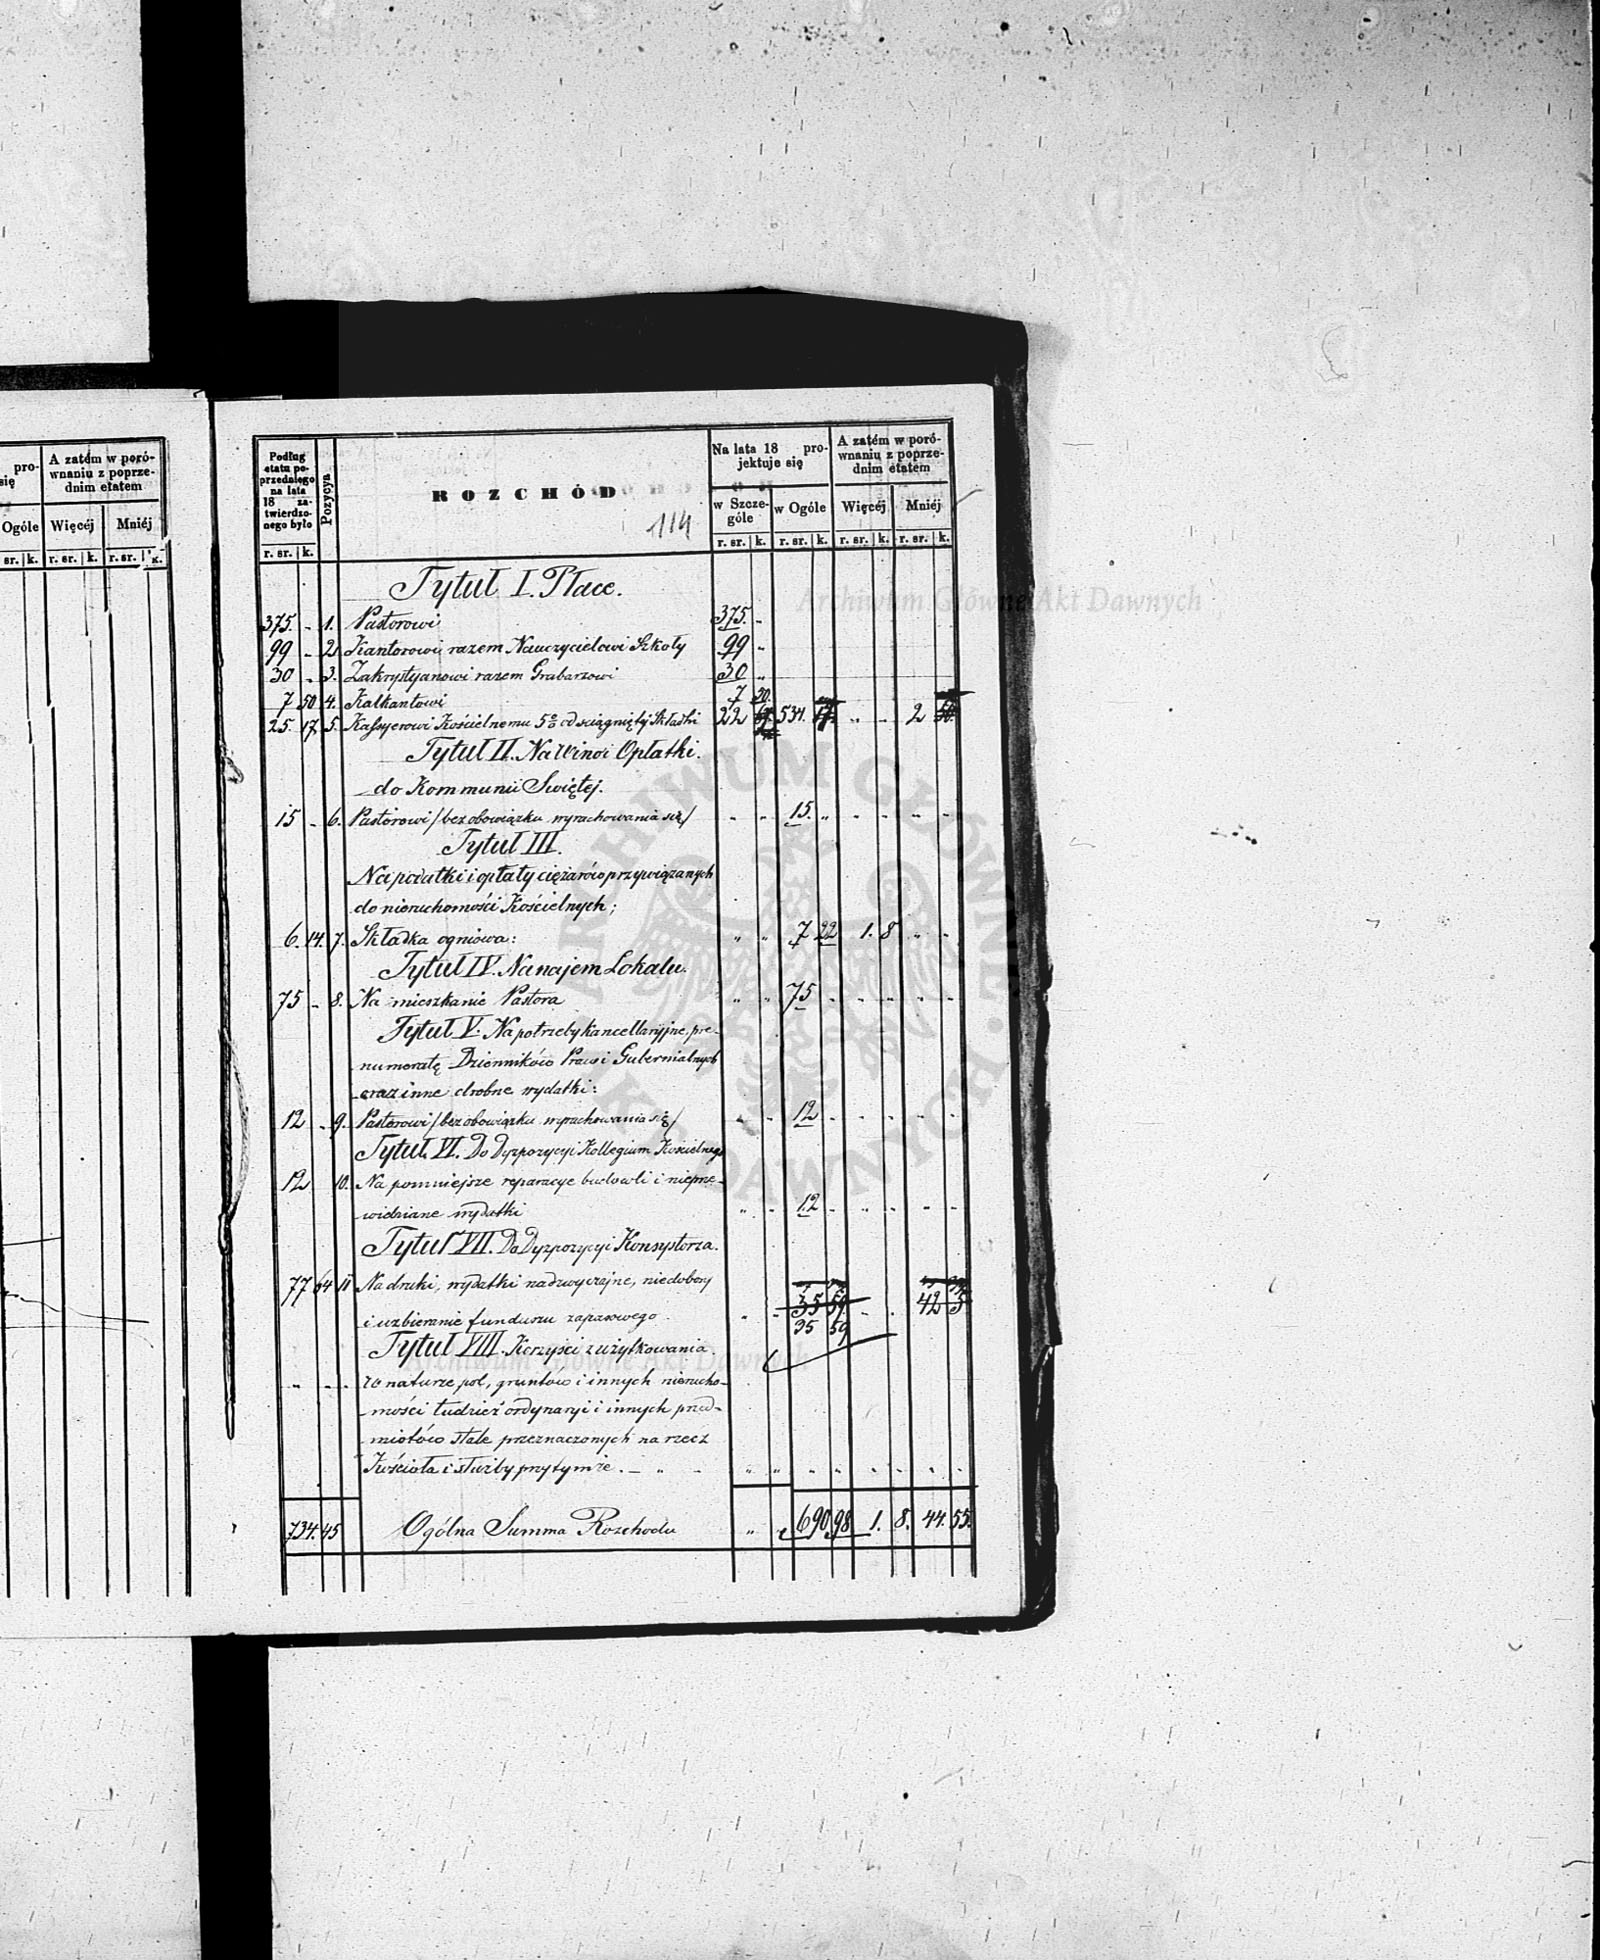 pro-
się
A zatém w poró-
wnaniu z poprze-
dnim etatem
Ogóle Więcéj Mniéj
sr. k. r. sr. k. r. sr. k.
Podług
etatu po-
przedniego
na lata
18 za-
twierdzo-
nego było
Pozycya
ROZCHÓD
114
Na lata 18 pro-
jektuje się
A zatém w poró-
wnaniu z poprze-
dnim etatem
w Szcze-
góle
w Ogóle Więcéj Mniéj
r. sr. k. r. sr. k. r. sr. k. r. sr. k. r. sr. k.
Tytuł I. Płace.
375. - 1. Pastorowi 375. "
99 - 2. Kantorowi razem Nauczycielowi Szkoły 99 "
30 - 3. Zakrystyanowi razem Grabarzowi 30 "
7 50 4. Kalkantowi 7 50.
25. 17. 5. Kassyerowi Kościelnemu 5% od ściągniętej Składki 22 534. " - 2
Tytuł II. Na Wino i Opłatki
do Kommunii Swiętej.
15 - 6. Pastorowi /bez obowiązku wyrachowania się/ " " 15. " " " " "
Tytuł III.
Na podatki i opłaty ciężarów przywiązanych
do nieruchomości Kościelnych;
6. 14. 7. Składka ogniowa: " " 7 22 1. 8 " "
Tytuł IV. Na najem Lokalu.
75 - 8. Na mieszkanie Pastora " " 75 " " " " "
Tytuł V. Na potrzeby kancellaryjne, pre-
numeratę Dzienników Praw i Gubernialnych
oraz inne drobne wydatki:
12 - 9. Pastorowi /bez obowiązku wyrachowania się/ " " 12 " " " " "
Tytuł VI. Do Dyzpozycyi Kollegium Kościelnego
12 10. Na pomniejsze reparacye budowli i nieprze-
widziane wydatki " " 12 " " " " "
Tytuł VII. Do Dyzpozycyi Konsystorza.
77 64 11 Na druki, wydatki nadzwyczajne, niedobory
i uzbieranie funduszu zapasowego. " " 35 59 " " 42 5
35 59
Tytuł VIII. Korzyści z użytkowania
" " - w naturze pol, gruntów i innych nierucho-
mości tudzież ordynaryi i innych przed-
miotów stale przeznaczonych na rzecz
Kościoła i służby przytymże. - " - " " " " " " " "
734. 45 Ogólna Summa Rozchodu " " 690 98 1. 8. 44. 55.
Archiwum Główne Akt Dawnych
ARCHIWUM GŁÓWNE AKT DAWNYCH
Archiwum Główne Akt Dawnych